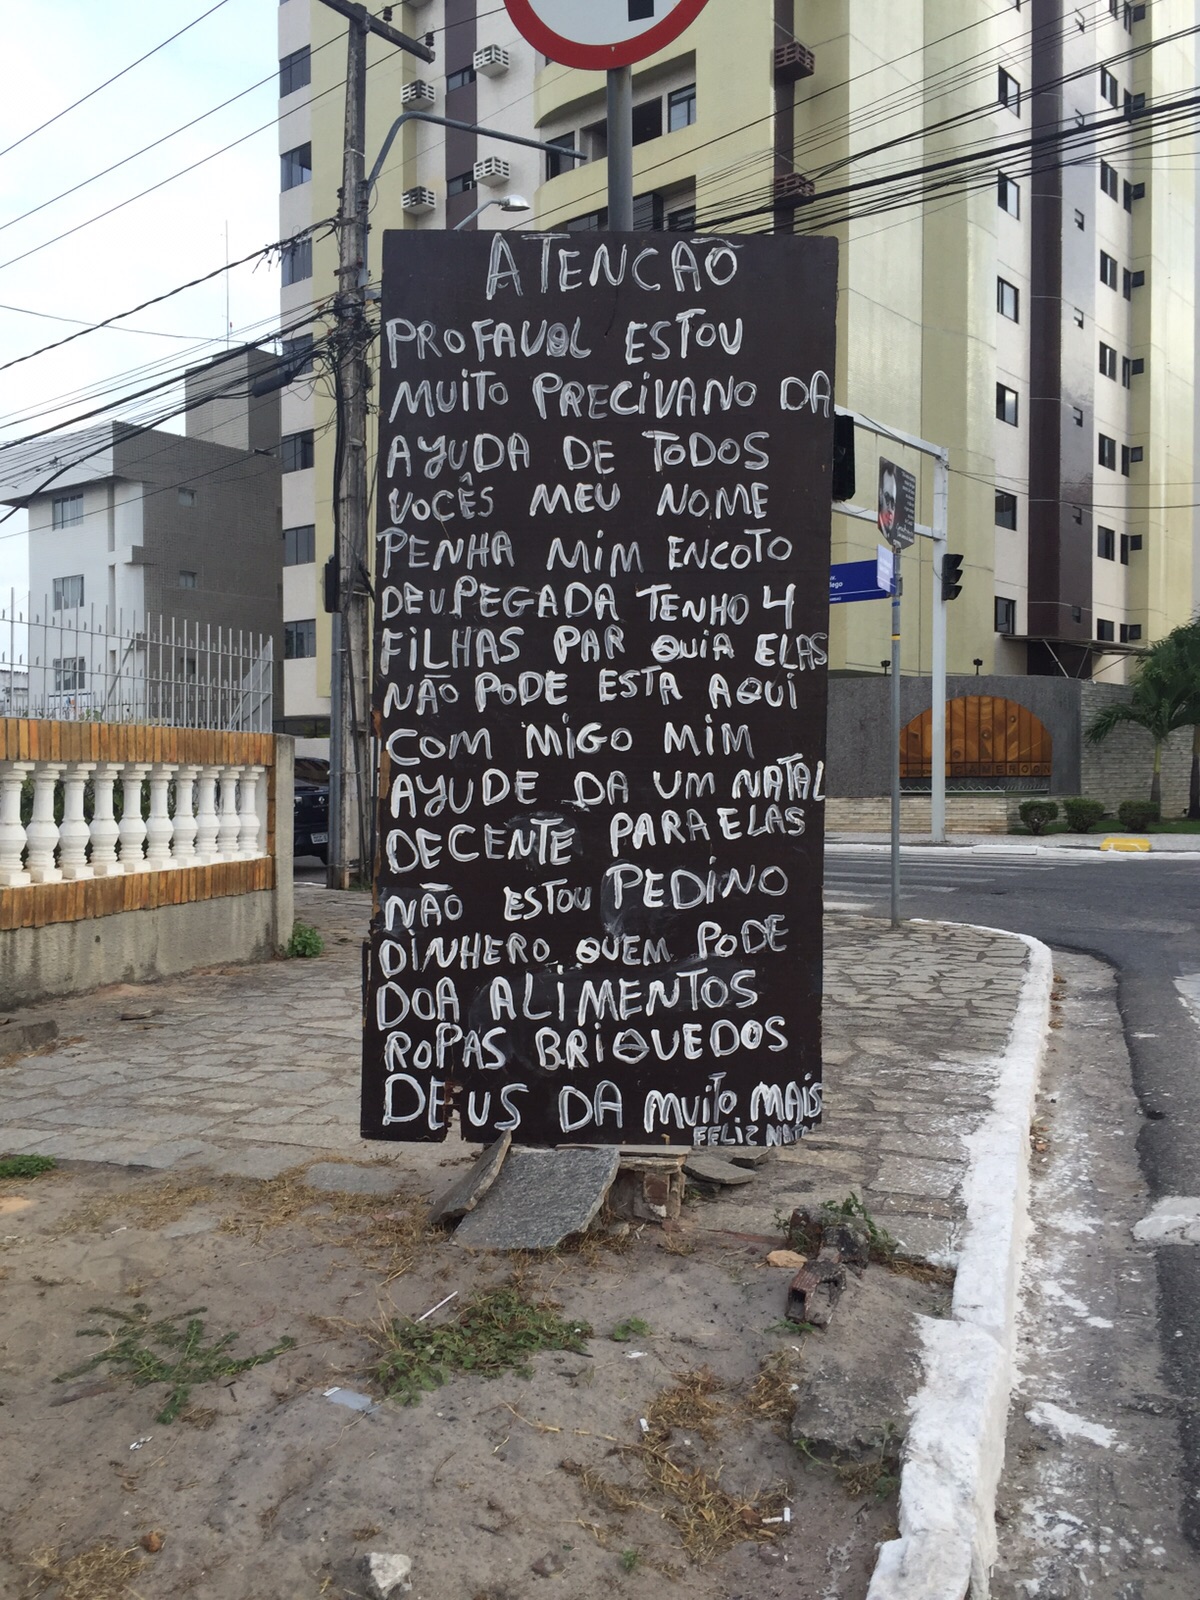 ATENCAÕ
PROFAVOL ESTOU
MUITO PRECIVANO DA
AYUDA DE TODOS
VOCÊS MEU NOME
PENHA MIM ENCOTO
DEUPEGADA TENHO 4
FILHAS PAR QUIA ELAS
NÃO PODE ESTA AQUI
COM MIGO MIM
AYUDE DA UM NATAL
DECENTE PARA ELAS
NÃO ESTOU PEDINO
DINHERO, QUEM PODE
DOA ALIMENTOS
ROPAS BRIQUEDOS
DEUS DA MUITO MAIS
FELIZ NATAL
CAMEROON